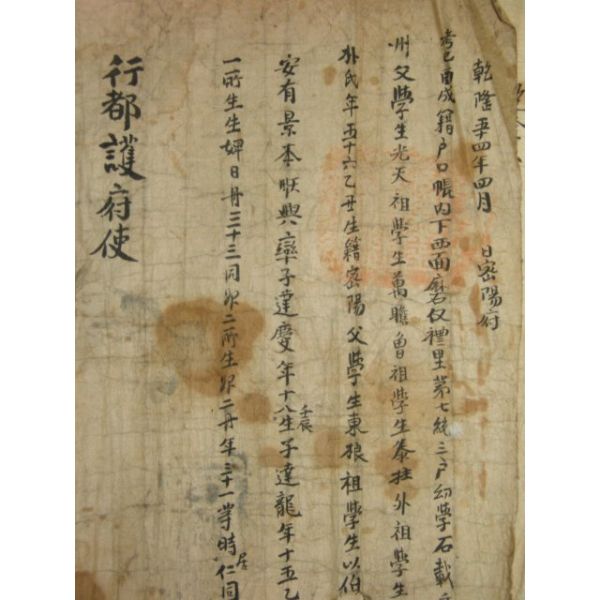 乾隆五十四年四月 日密陽府
考己酉成籍戶口帳內下西面磨仅禮里第七統三戶幼學石載
州父學生光天祖學生萬瞻曾祖學生泰柱外祖學生
朴氏年五十六乙丑生籍密陽父學生東狼祖學生以伯
安有景本順興率子達慶年十八生壬辰子達龍年十五乙
一所生生婢日丹三十三同婢二所生婢二丹年三十一等時居仁同
行都護府使